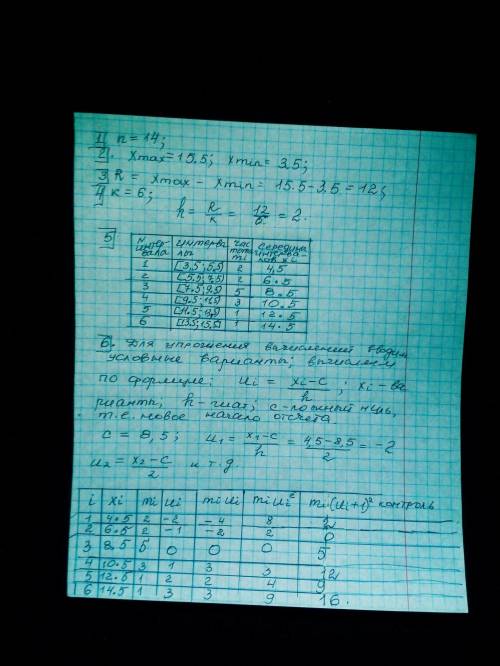 1 n = 14;
2. xmax = 15.5; xmin = 3,5;
3 R = xmax - xmin = 15.5 - 3.5 = 12;
4 к = 6; h = R/к = 12/6 = 2.
5
N интервала | интервалы | частота mi | середина интервалов xi
1 [3,5; 5,5) 2 4,5
2 [5,5; 7,5) 2 6.5
3 [7.5; 9,5) 5 8.5
4 [9.5; 11,5) 3 10.5
5 [11.5; 13,5) 1 12.5
6 [13,5; 15,5] 1 14.5
6. Для упрощения вычислений вводим
условные варианты; вычисляем
по формуле: ui = xi-c/h; xi - ва
рианты; h - шаг; c - ложный нуль,
т.е. новое начало отсчета.
c = 8,5; u1 = x1-c/h = 4,5-8,5/2 = -2
u2 = x2-c/2 и т.д.
i xi mi ui miui miui² mi(ui+1)² контроль
1 4.5 2 -2 -4 8 2
2 6.5 2 -1 -2 2 0
3 8,5 5 0 0 0 5
4 10.5 3 1 3 3 12
5 12.5 1 2 2 4 9
6 14.5 1 3 3 9 16.